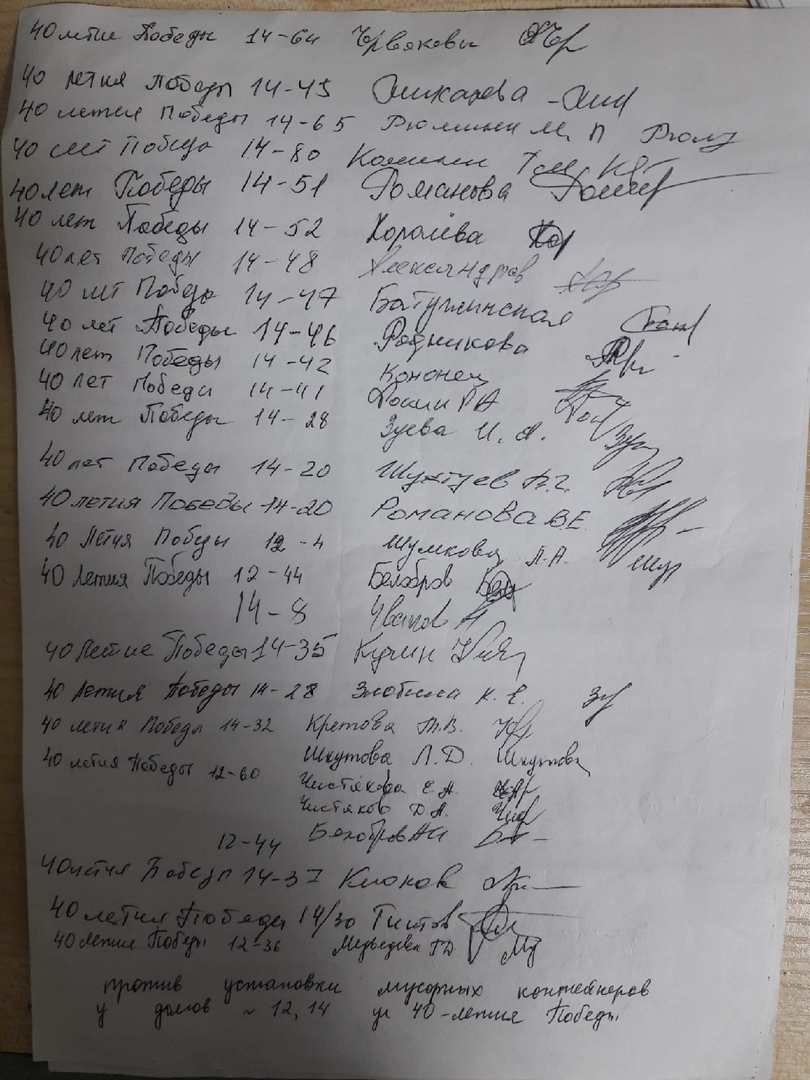 40 летие Победы 14-64 Червяковы
40 летия Победы 14-45
40 летия Победы 14-65 М. П.
40 лет Победа 14-80
40 лет Победы 14-51 Романова
40 лет Победы 14-52 Королёва
40 лет Победы 14-48 Александров
40 лет Победа 14-47 Батужинская
40 лет Победы 14-46 Родникова
40 лет Победы 14-42 Кононец
40 лет Победы 14-41
40 лет Победы 14-28 Зуева И. А.
40 лет Победы 14-20
40 летия Победы 14-20 Романова В.Е.
40 Летия Победы 12-4 Шумкова Л.А.
40 Летия Победы 12-44 Белобров
14-8
40 Летие Победы 14-35 Кучин
40 Летия Победы 14-28 К. Е.
40 летия Победы 14-32 Кретова Т.В.
40 летия Победы 12-60 Шкутова Л.Д. Шкутова
Чистякова Е А
Чистяков Д А
12-44 Белобров
40 летия Победы 14-37
40 летия Победы 14/30 Титов
40 летия Победы 12-36 Медведева
против установки мусорных контейнеров
у домов 12, 14 ул 40-летия Победы